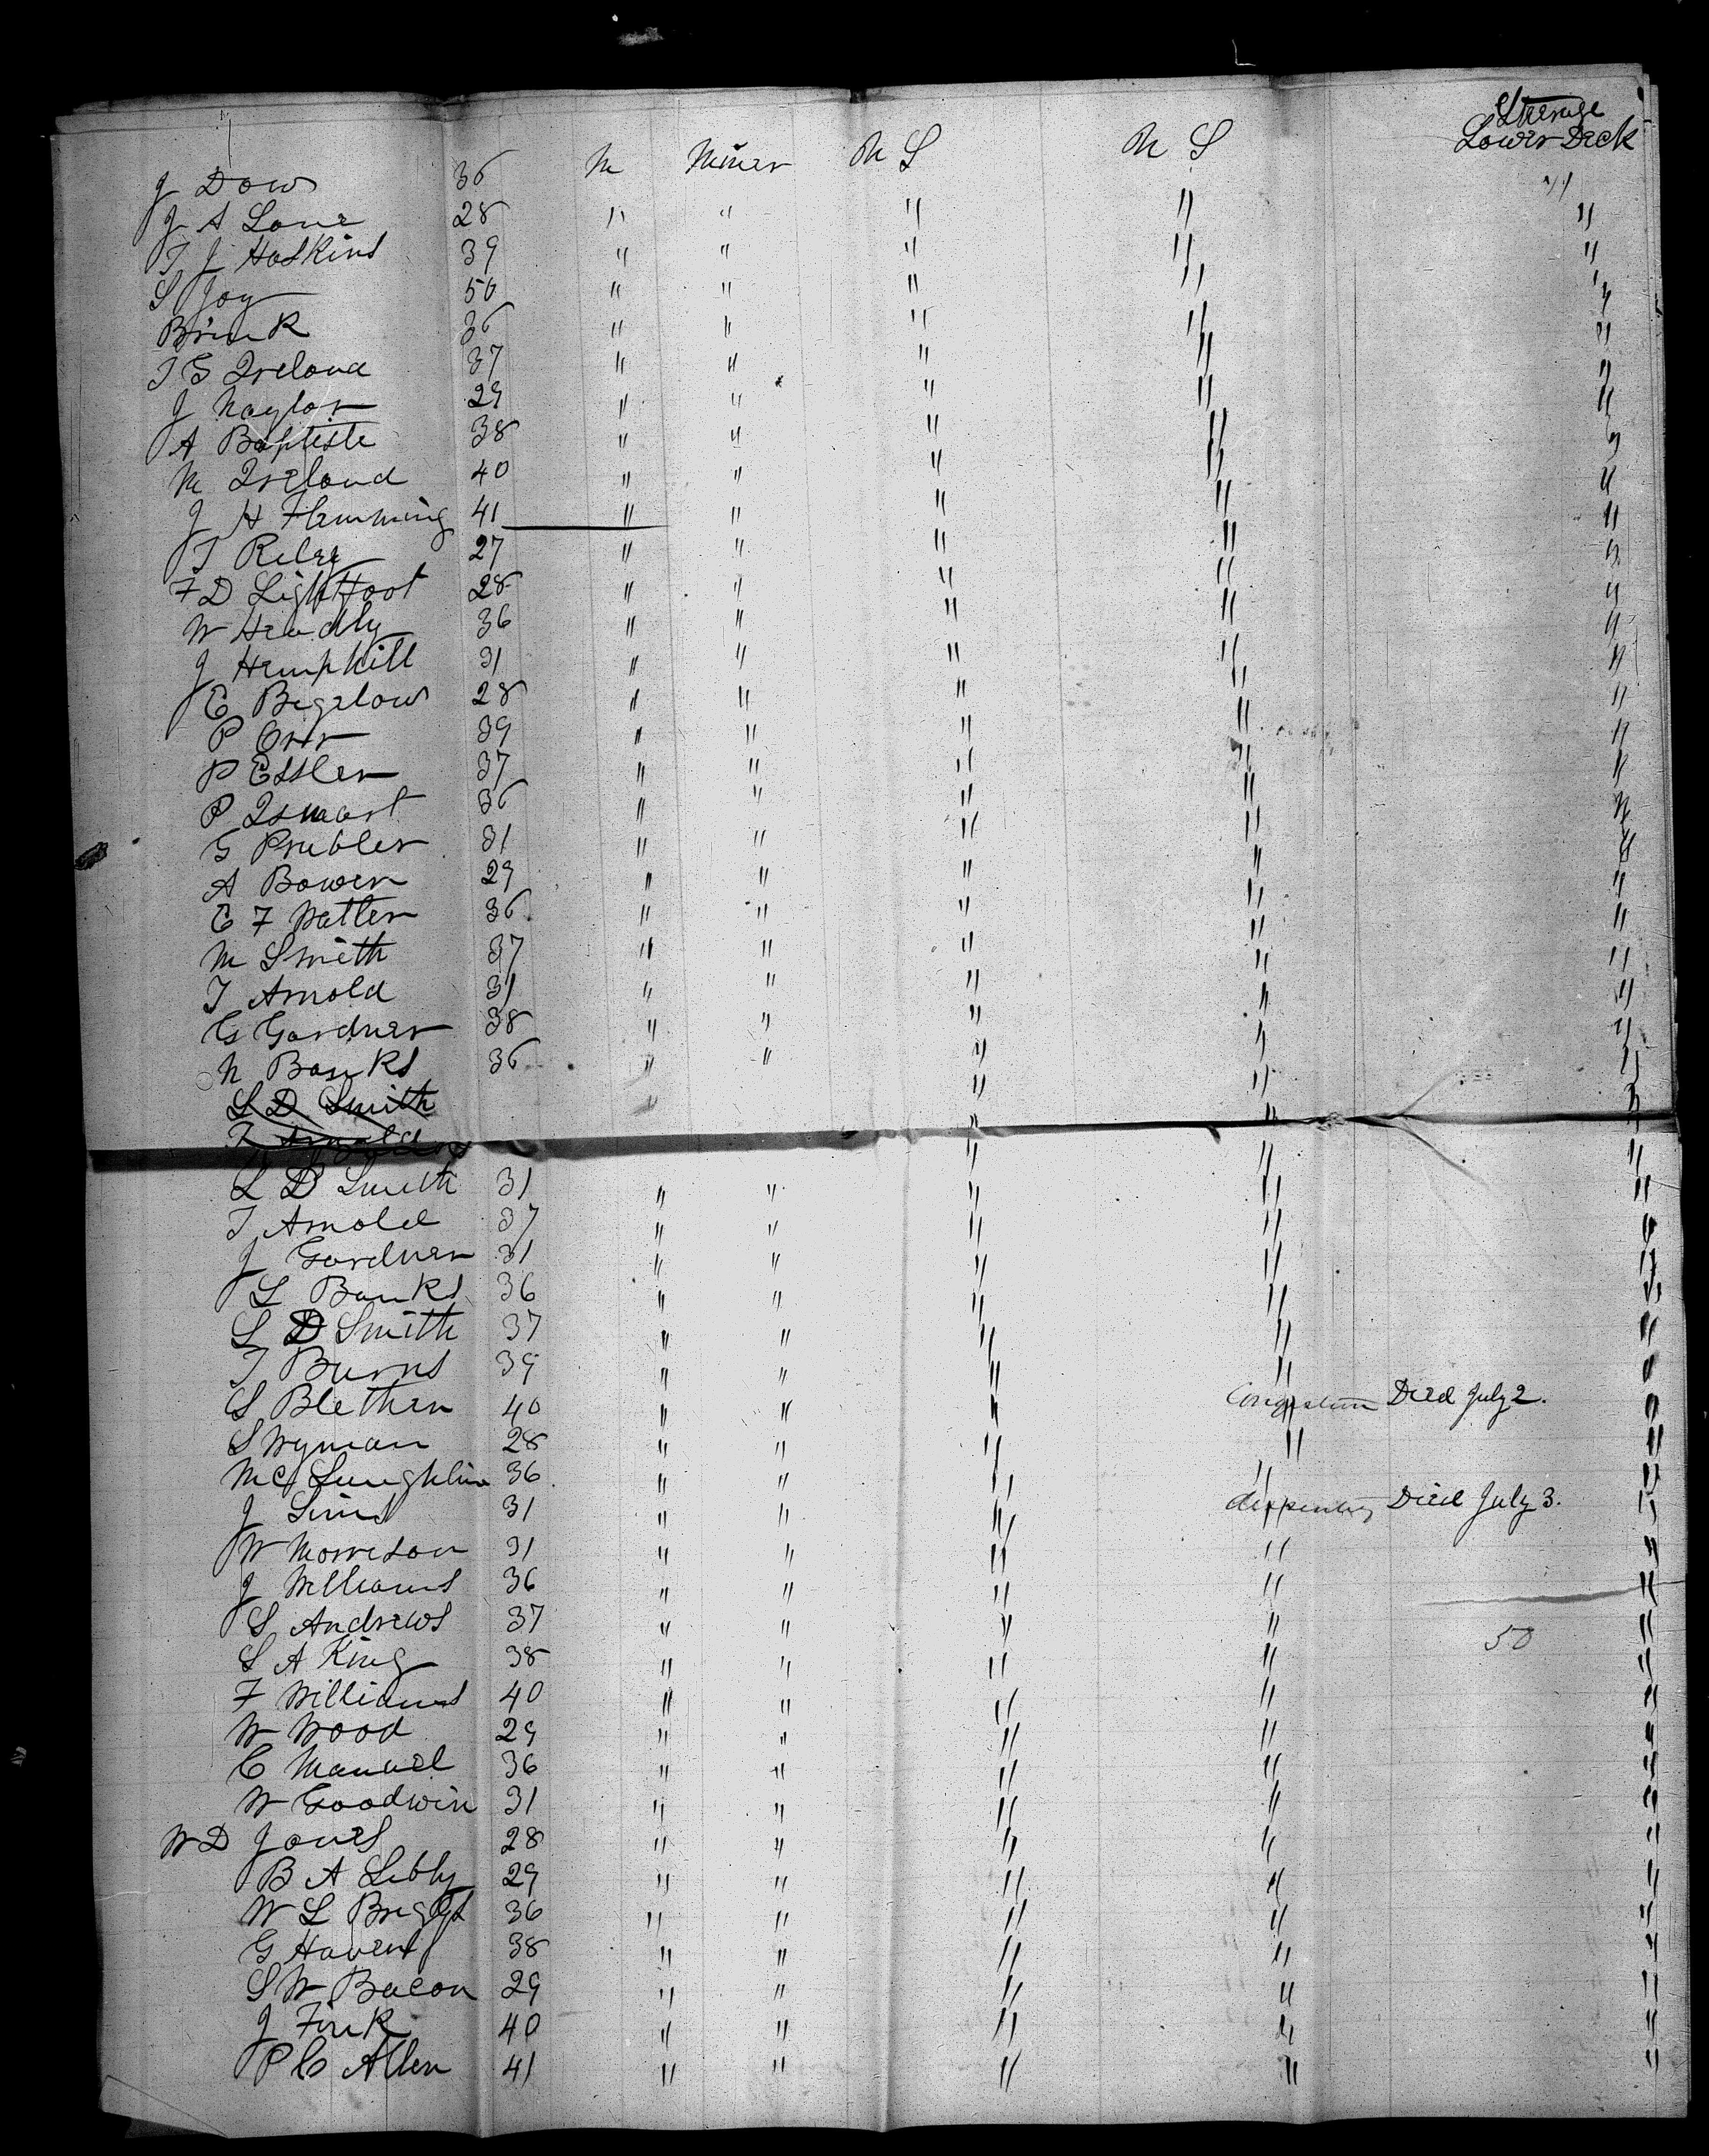 Steerage
J Dow 36 M Miner U S U S Lower Deck
J A Lane 28 " " " " "
T J Hoskins 39 " " " " "
S Joy 50 " " " " "
Brink 36 " " " " "
T G Ireland 37 " " " " "
J Naylor 29 " " " " "
A Baptiste 38 " " " " "
M Ireland 40 " " " " "
J H Flemming 41 " " " " "
T Riley 27 " " " " "
F D Lightfoot 28 " " " " "
W Headly 36 " " " " "
J Hemphill 31 " " " " "
E Bigelow 28 " " " " "
P Orr 39 " " " " "
P Essler 37 " " " " "
P 36 " " " " "
G Prebler 31 " " " " "
A Bowen 29 " " " " "
E F 36 " " " " "
M Smith 37 " " " " "
T Arnold 31 " " " " "
G Gardner 38 " " " " "
N Banks 36 " " " " "
L D Smith
T Arnold
L D Smith 31 " " " " "
T Arnold 37 " " " " "
J Gardner 31 " " " " "
L Banks 36 " " " " "
L D Smith 37 " " " " "
T Burns 39 " " " " "
S Blethen 40 " " " " Congestion Died July 2. "
S Wyman 28 " " " " "
McLaughlin 36 " " " " "
J Sims 31 " " " " Died July 3. "
W Morrison 31 " " " " "
J Williams 36 " " " " "
S Andrews 37 " " " " 50 "
S A King 38 " " " " "
F Williams 40 " " " " "
W Wood 29 " " " " "
C Manuel 36 " " " " "
W Goodwin 31 " " " " "
W D Jones 28 " " " " "
B A Libby 29 " " " " "
W L Briggs 36 " " " " "
G Havens 38 " " " " "
S W Bacon 29 " " " " "
J Fink 40 " " " " "
P C Allen 41 " " " " "